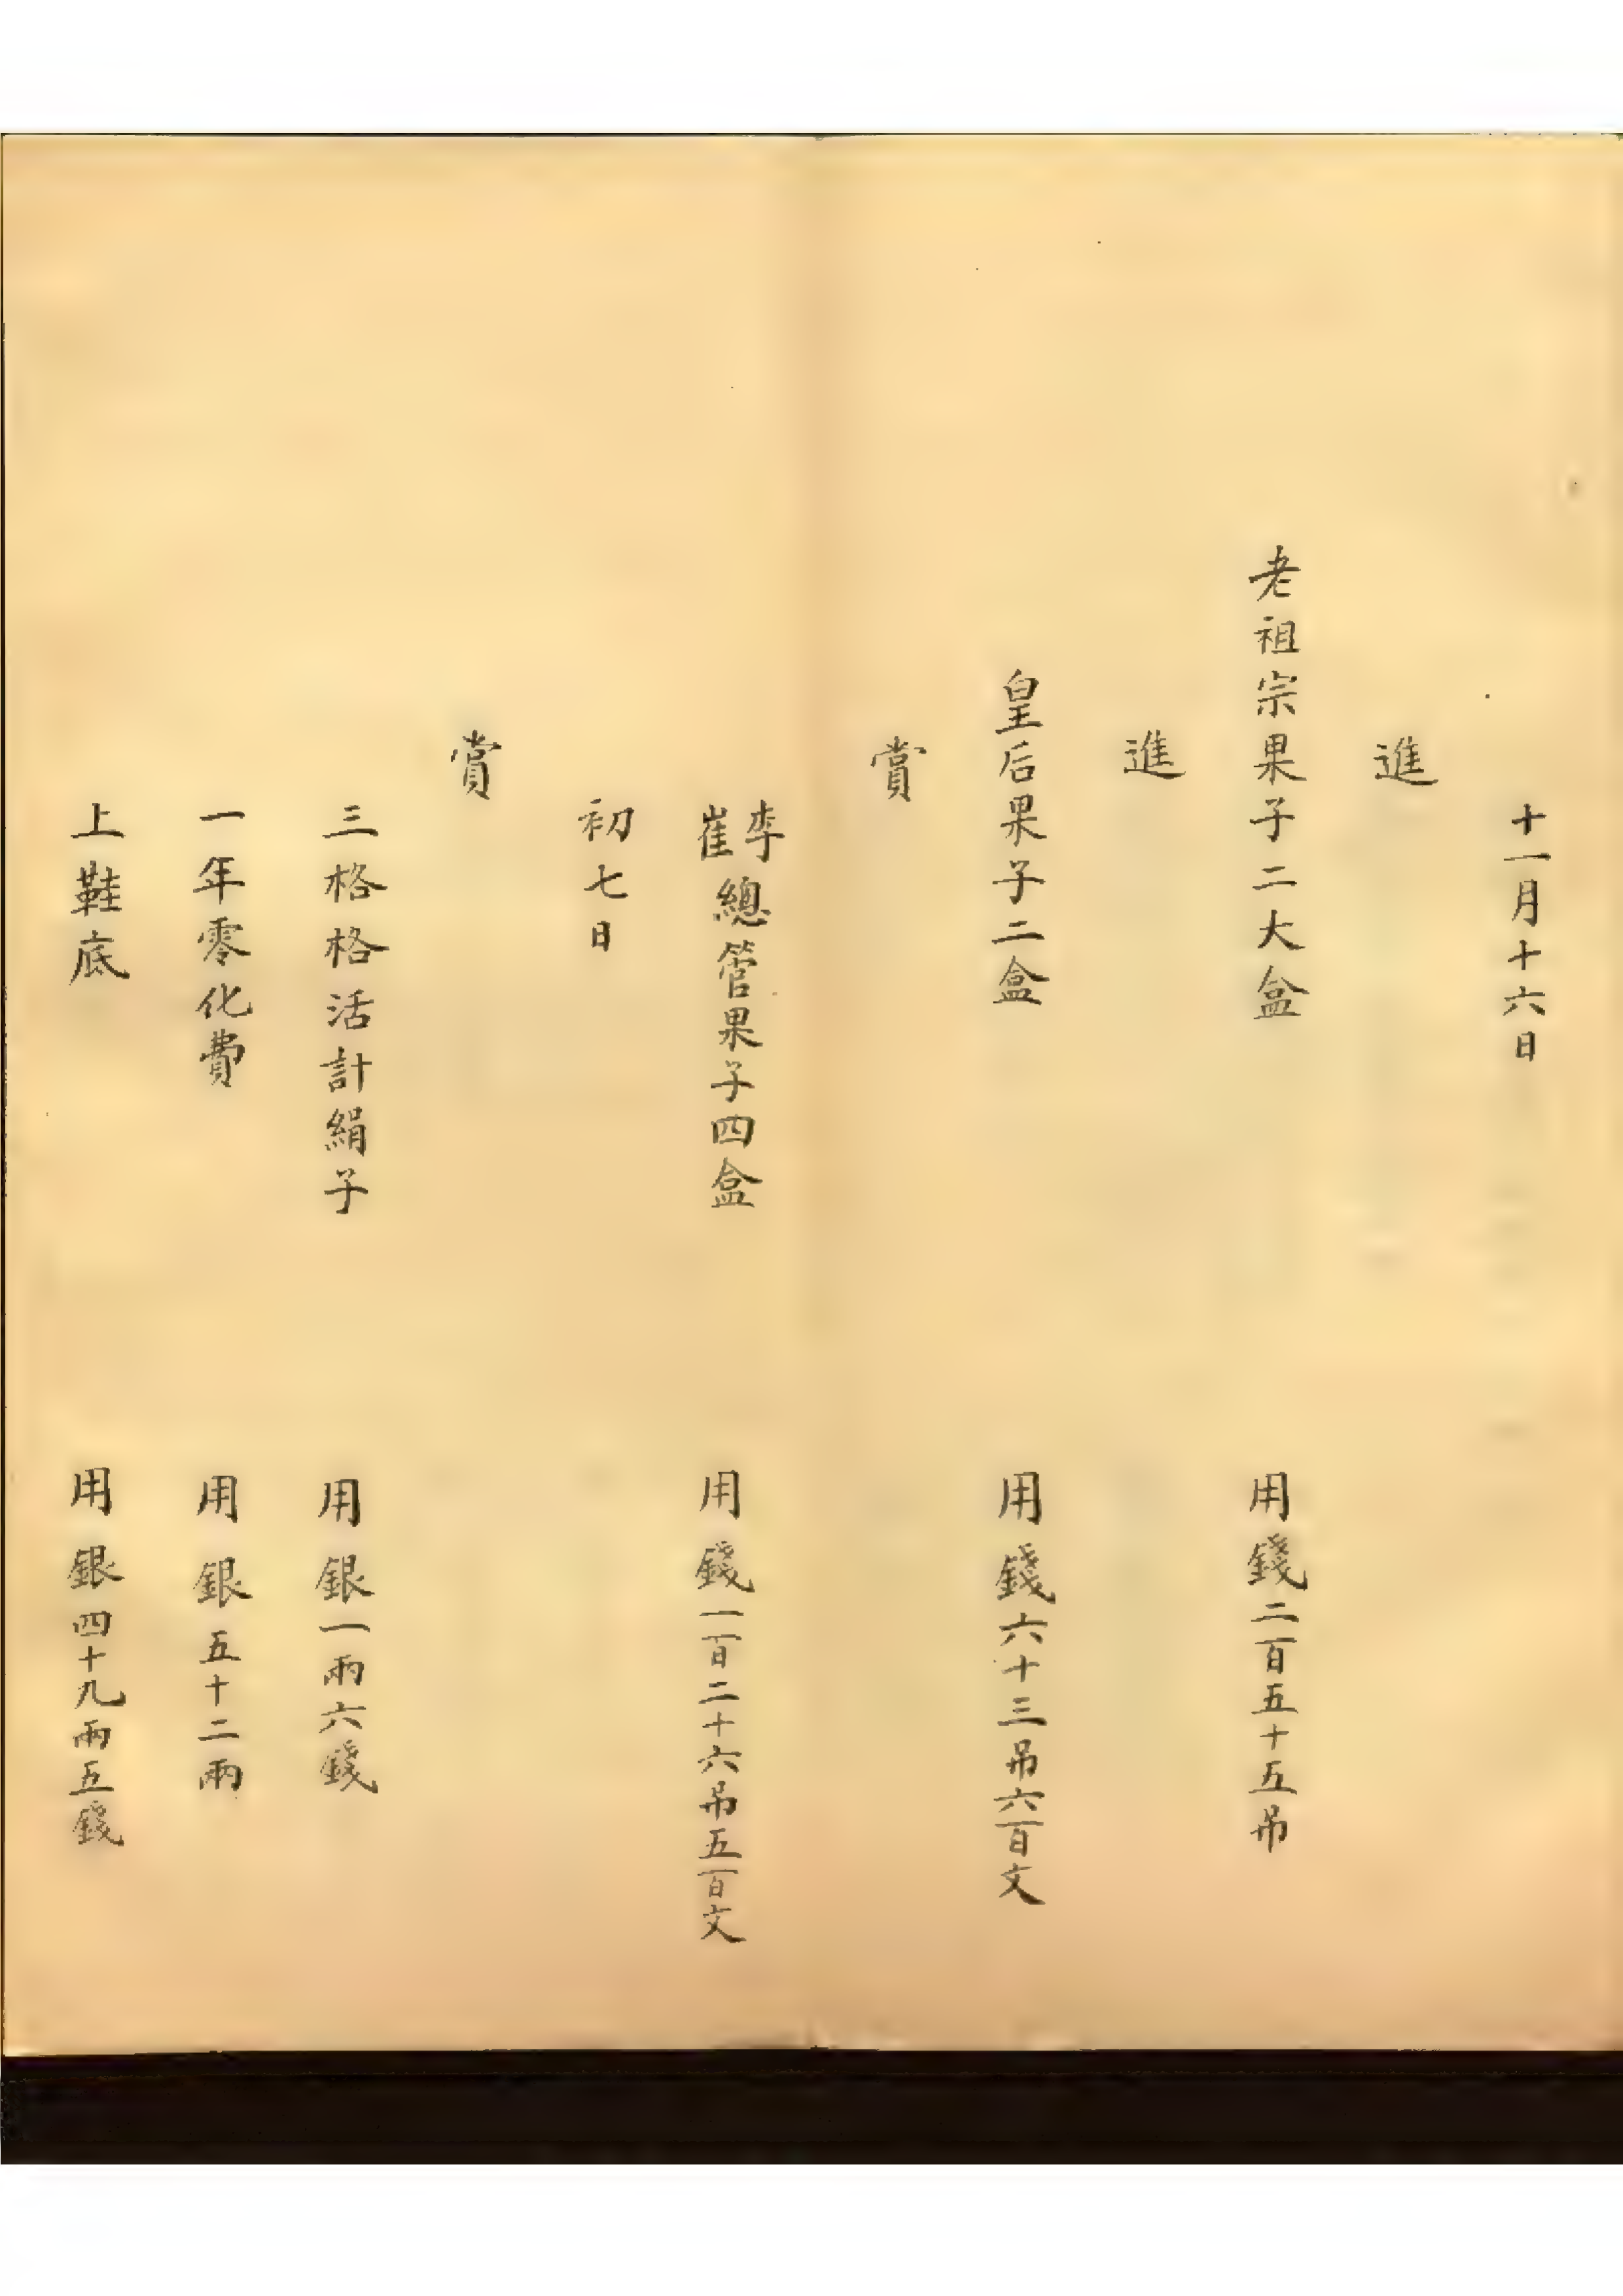 十一月十六日
進
老祖宗果子二大盒　用錢二百五十五吊
進
皇后果子二盒　用錢六十三吊六百文
賞
李崔總管果子四盒　用錢一百二十六吊五百文
初七日
賞
三格格活計絹子　用銀一兩六錢
一年零化費　用銀五十二兩
上鞋底　用銀四十九兩五錢